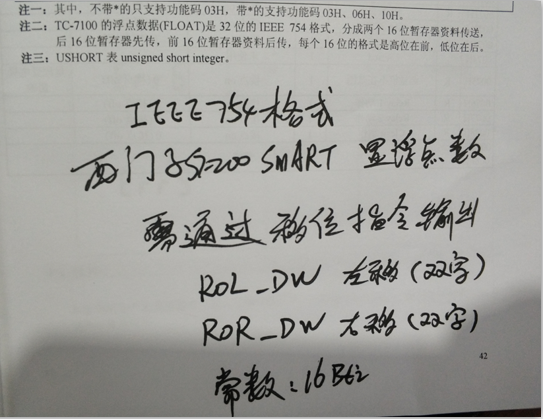 注一：其中，不带*的只支持功能码 03H，带*的支持功能码 03H、06H、10H。
注二：TC-7100 的浮点数据(FLOAT)是 32 位的 IEEE 754 格式，分成两个 16 位暂存器资料传送，
后 16 位暂存器先传，前 16 位暂存器资料后传，每个 16 位的格式是高位在前，低位在后。
注三：USHORT 表 unsigned short integer。
IEEE754格式
西门子S7-200 SMART 置浮点数
需通过移位指令输出
ROL_DW 左移(双字)
ROR_DW 右移(双字)
42
常数：16Bit